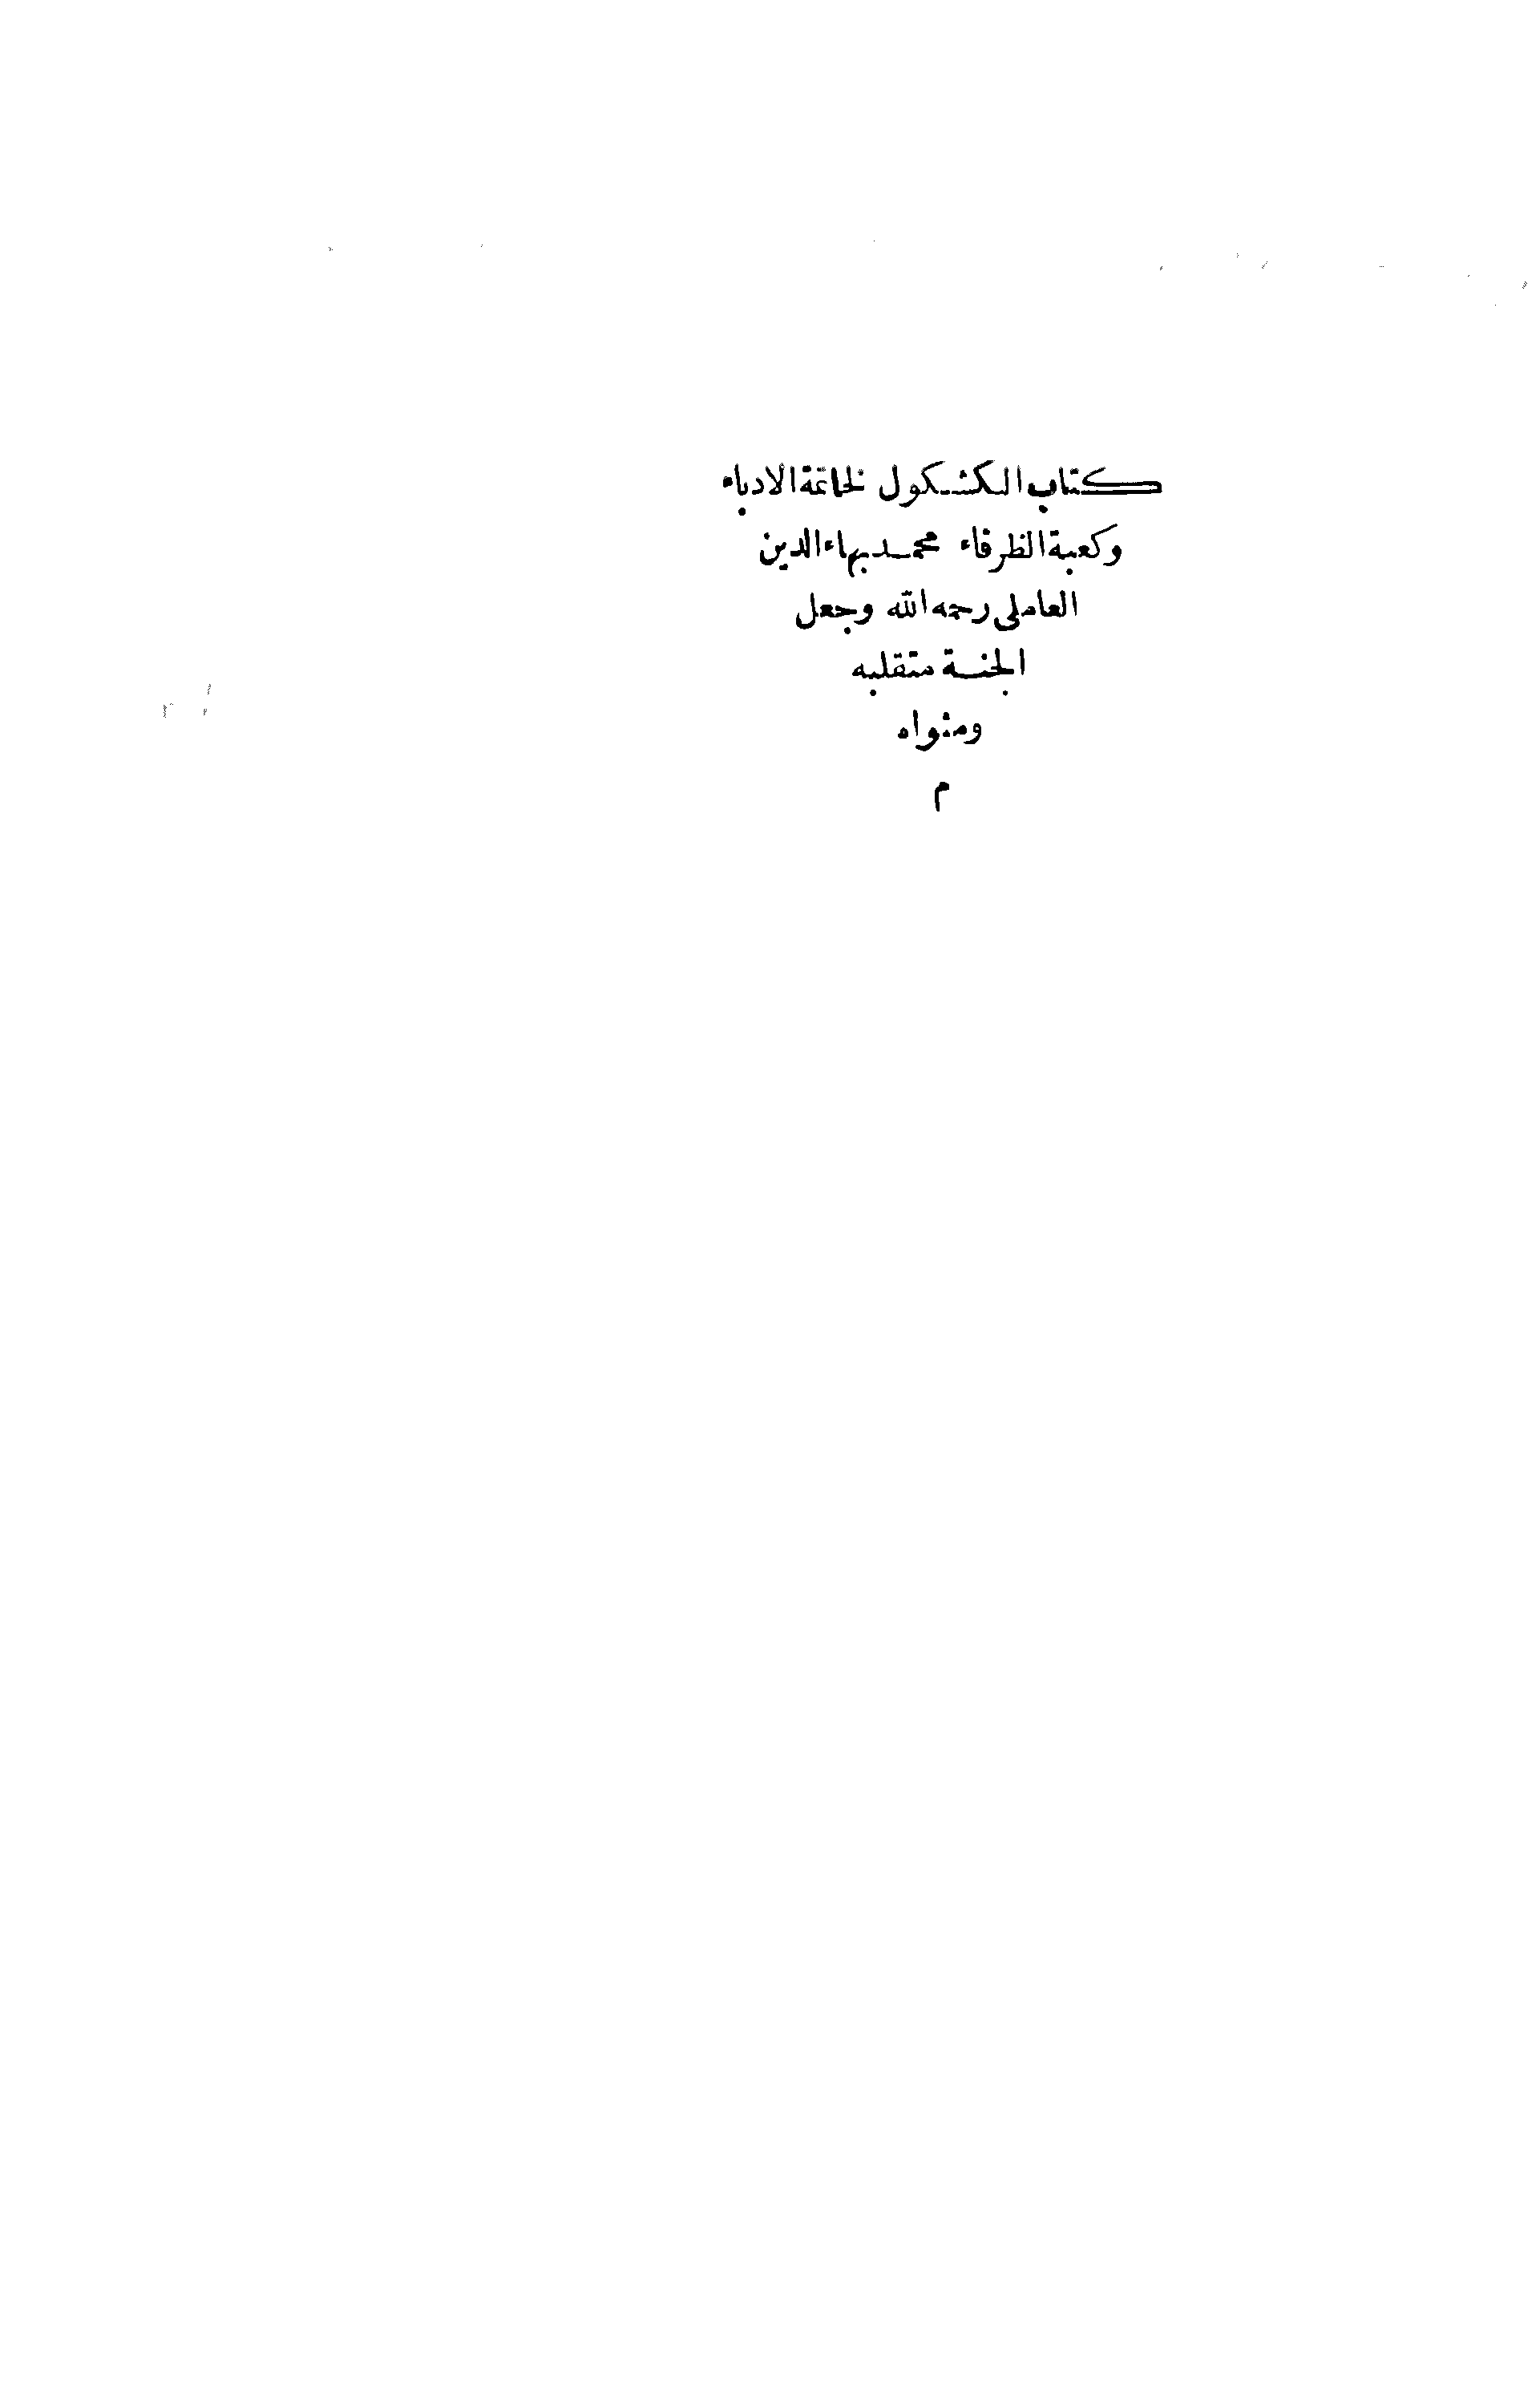 كتاب الكشكول لخاتمة الادباء
وكعبة الظرفاء محمد بهاء الدين
العاملى رحمه الله وجعل
الجنة متقلبه
ومثواه
م